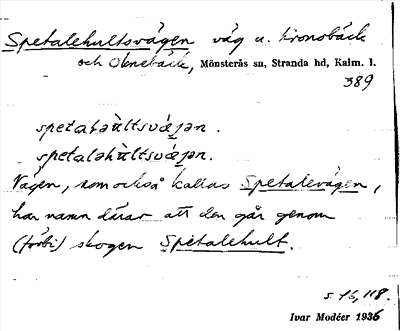 Spetalehultsvägen väg u. Kronobäck
och Oknebäck, Mönsterås sn, Stranda hd, Kalm. l.
389
spetaləhùltsvǽjən.
spetaləhùltsvǽjən.
Vägen, som också kallas Spetalevägen,
har namn därav att den går genom
(förbi) skogen Spetalehult.
s. 16, 118.
Ivar Modéer 1936